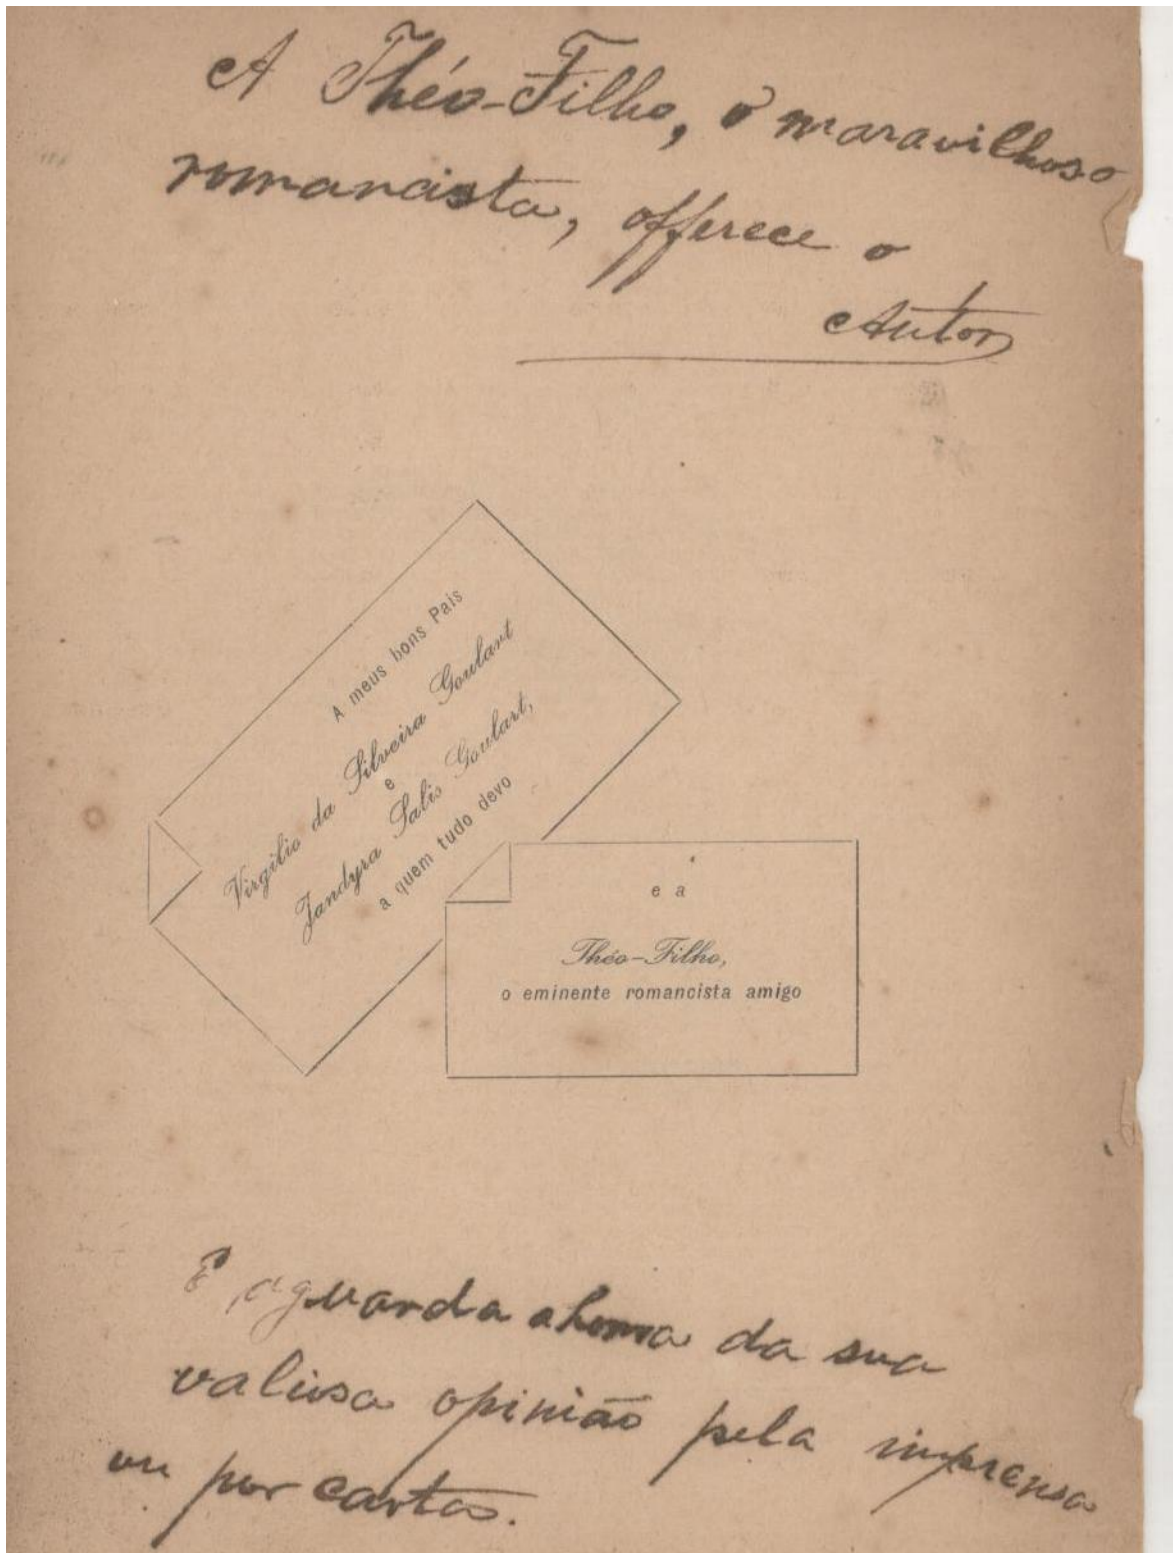 A Théo-Filho, o maravilhoso
romancista, offerece o
Autor
A meus bons Pais
Virgilio da Silveira Goulart
e
Jandyra Salis Goulart,
a quem tudo devo
e a
Théo-Filho,
o eminente romancista amigo
E, aguarda a honra da sua
valiosa opinião pela imprensa
ou por cartas.